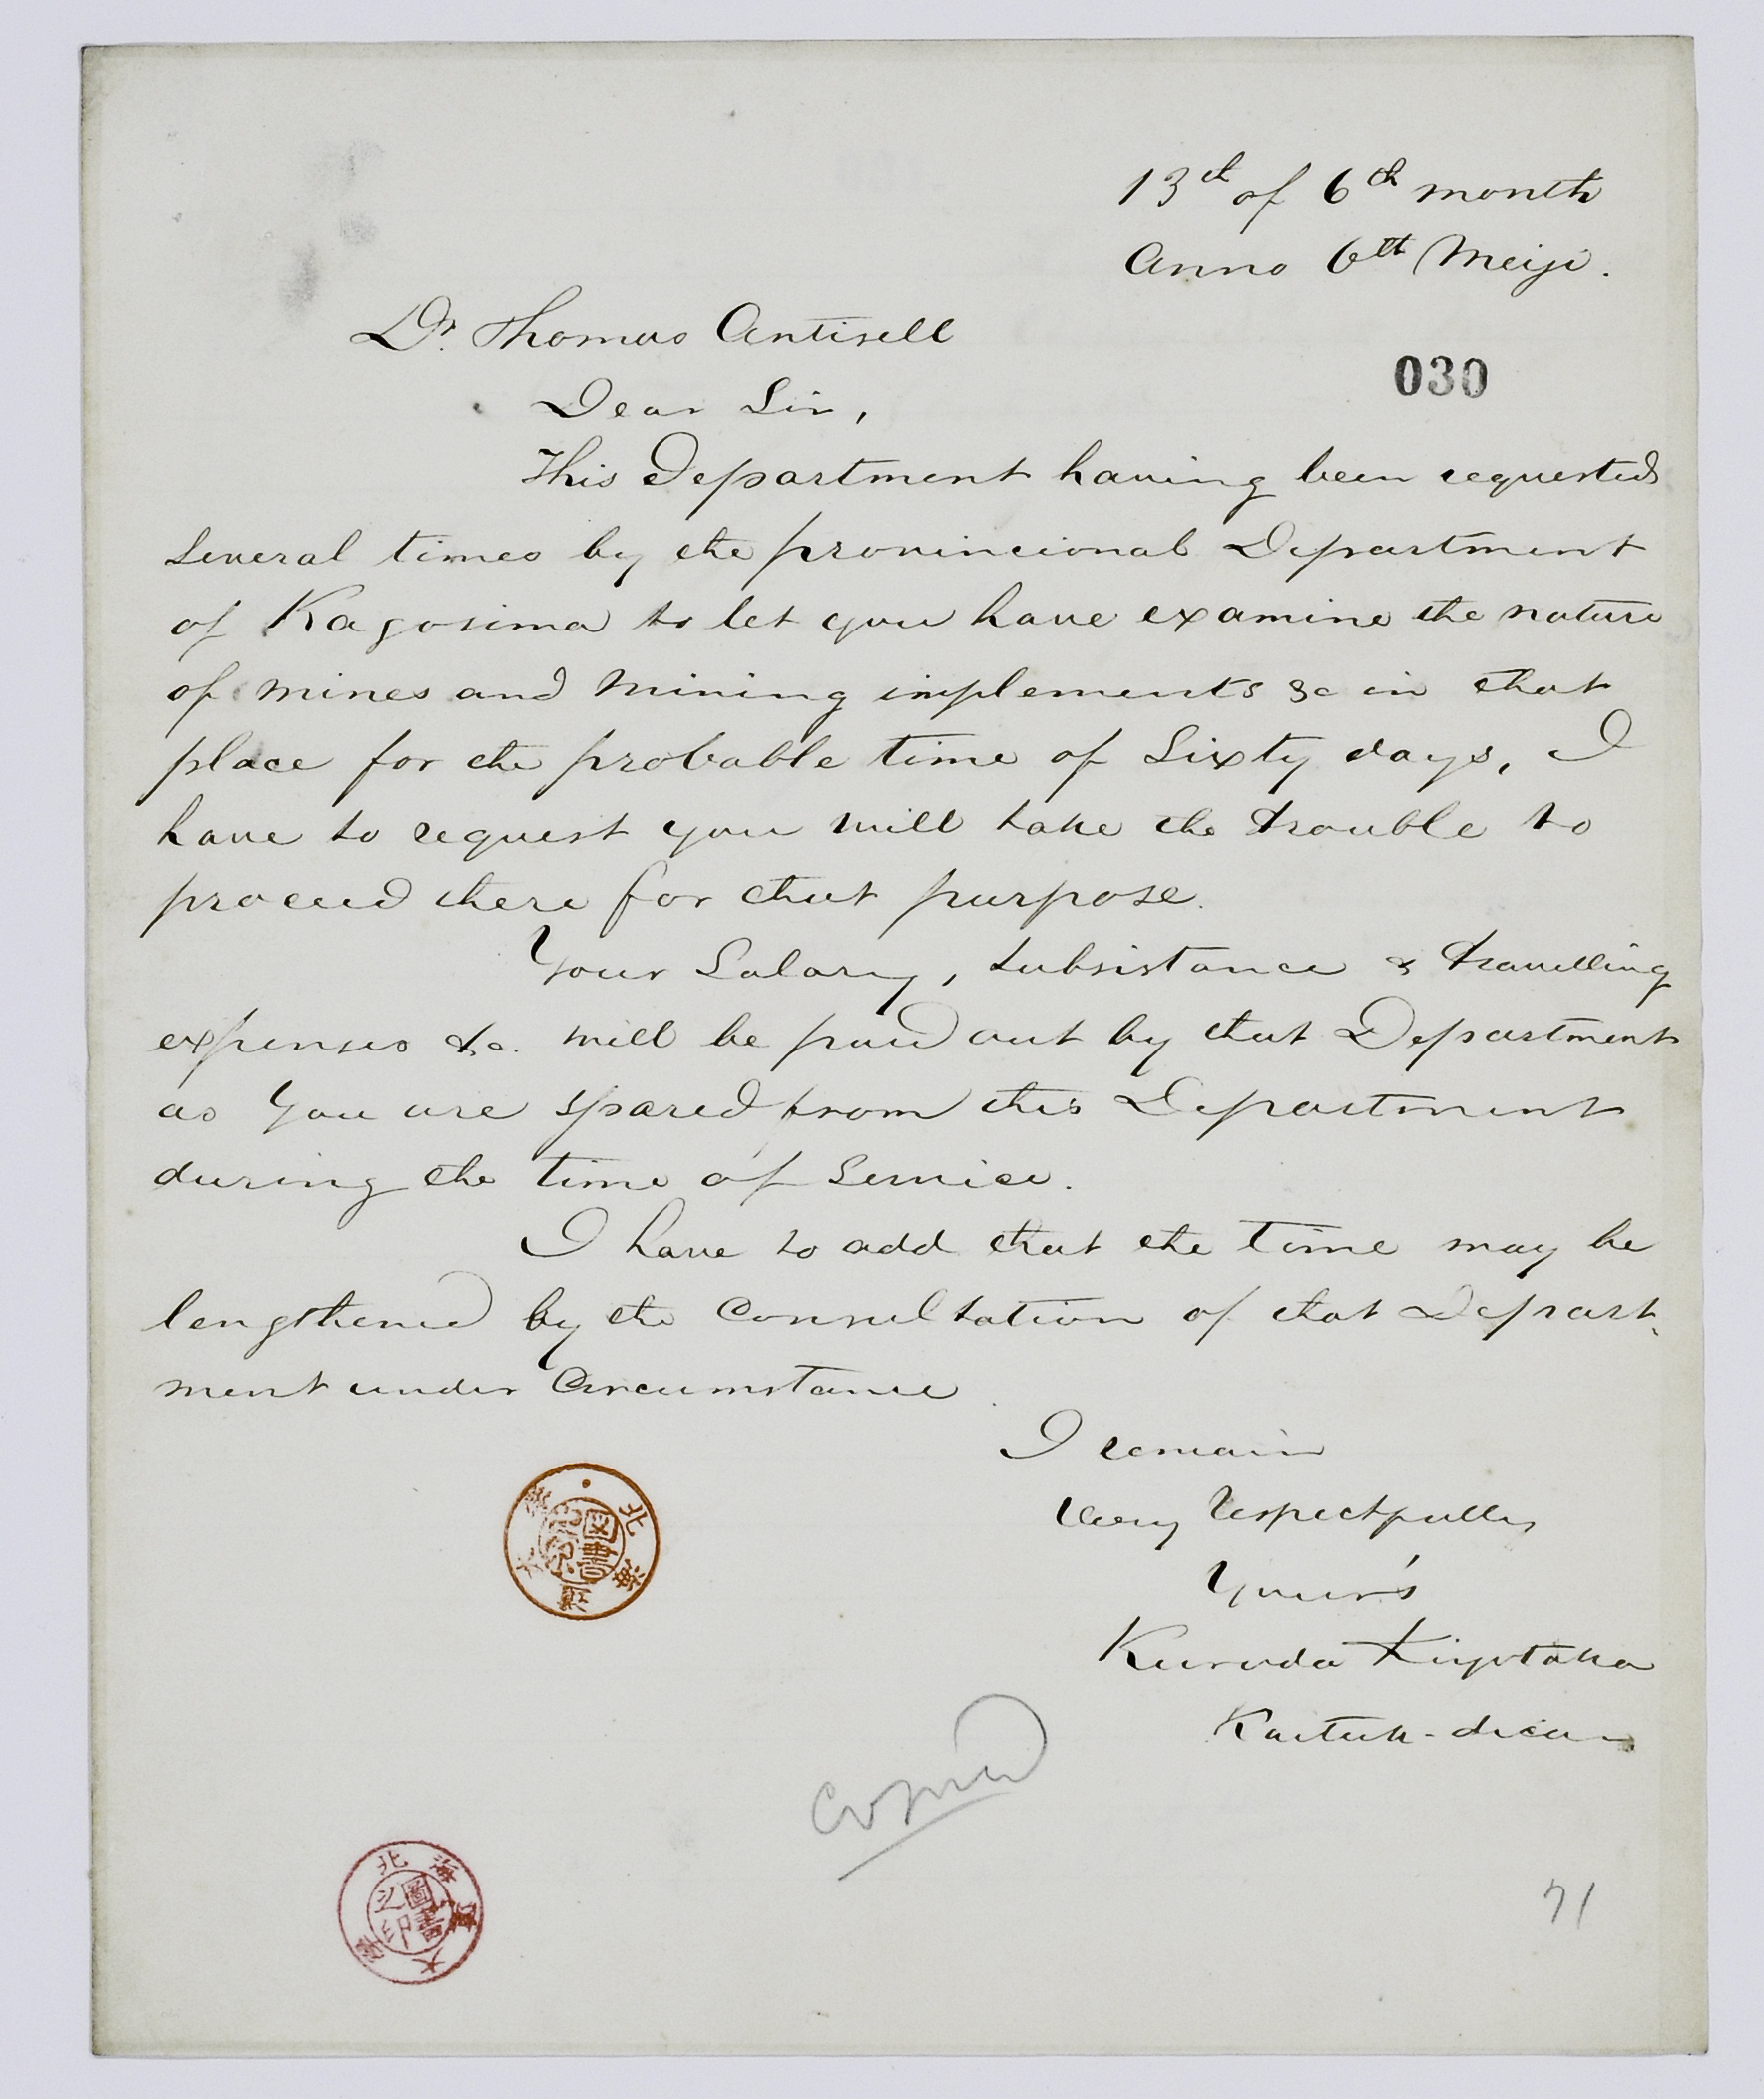 13th of 6th month
Anno 6th Meiji.
Dr. Thomas Antisell
030
Dear Sir,
This Department having been requested
several times by the provincional Department
of Kagosima to let you have examine the nature
of mines and mining implements &c in that
place for the probable time of Sixty days, I
have to request you will take the trouble to
proceed there for that purpose.
Your Salary, subsistance & travelling
expenses &c. will be paid out by that Department
as you are spared from this Department
during the time of Service.
I have to add that the time may be
lengthened by the Consultation of that Depart-
ment under Circumstance
I remain
Very Respectfully
Your's
Kuroda Kiyotaka
Kaituk-dican
Copied
71
北海道大學
圖書之印